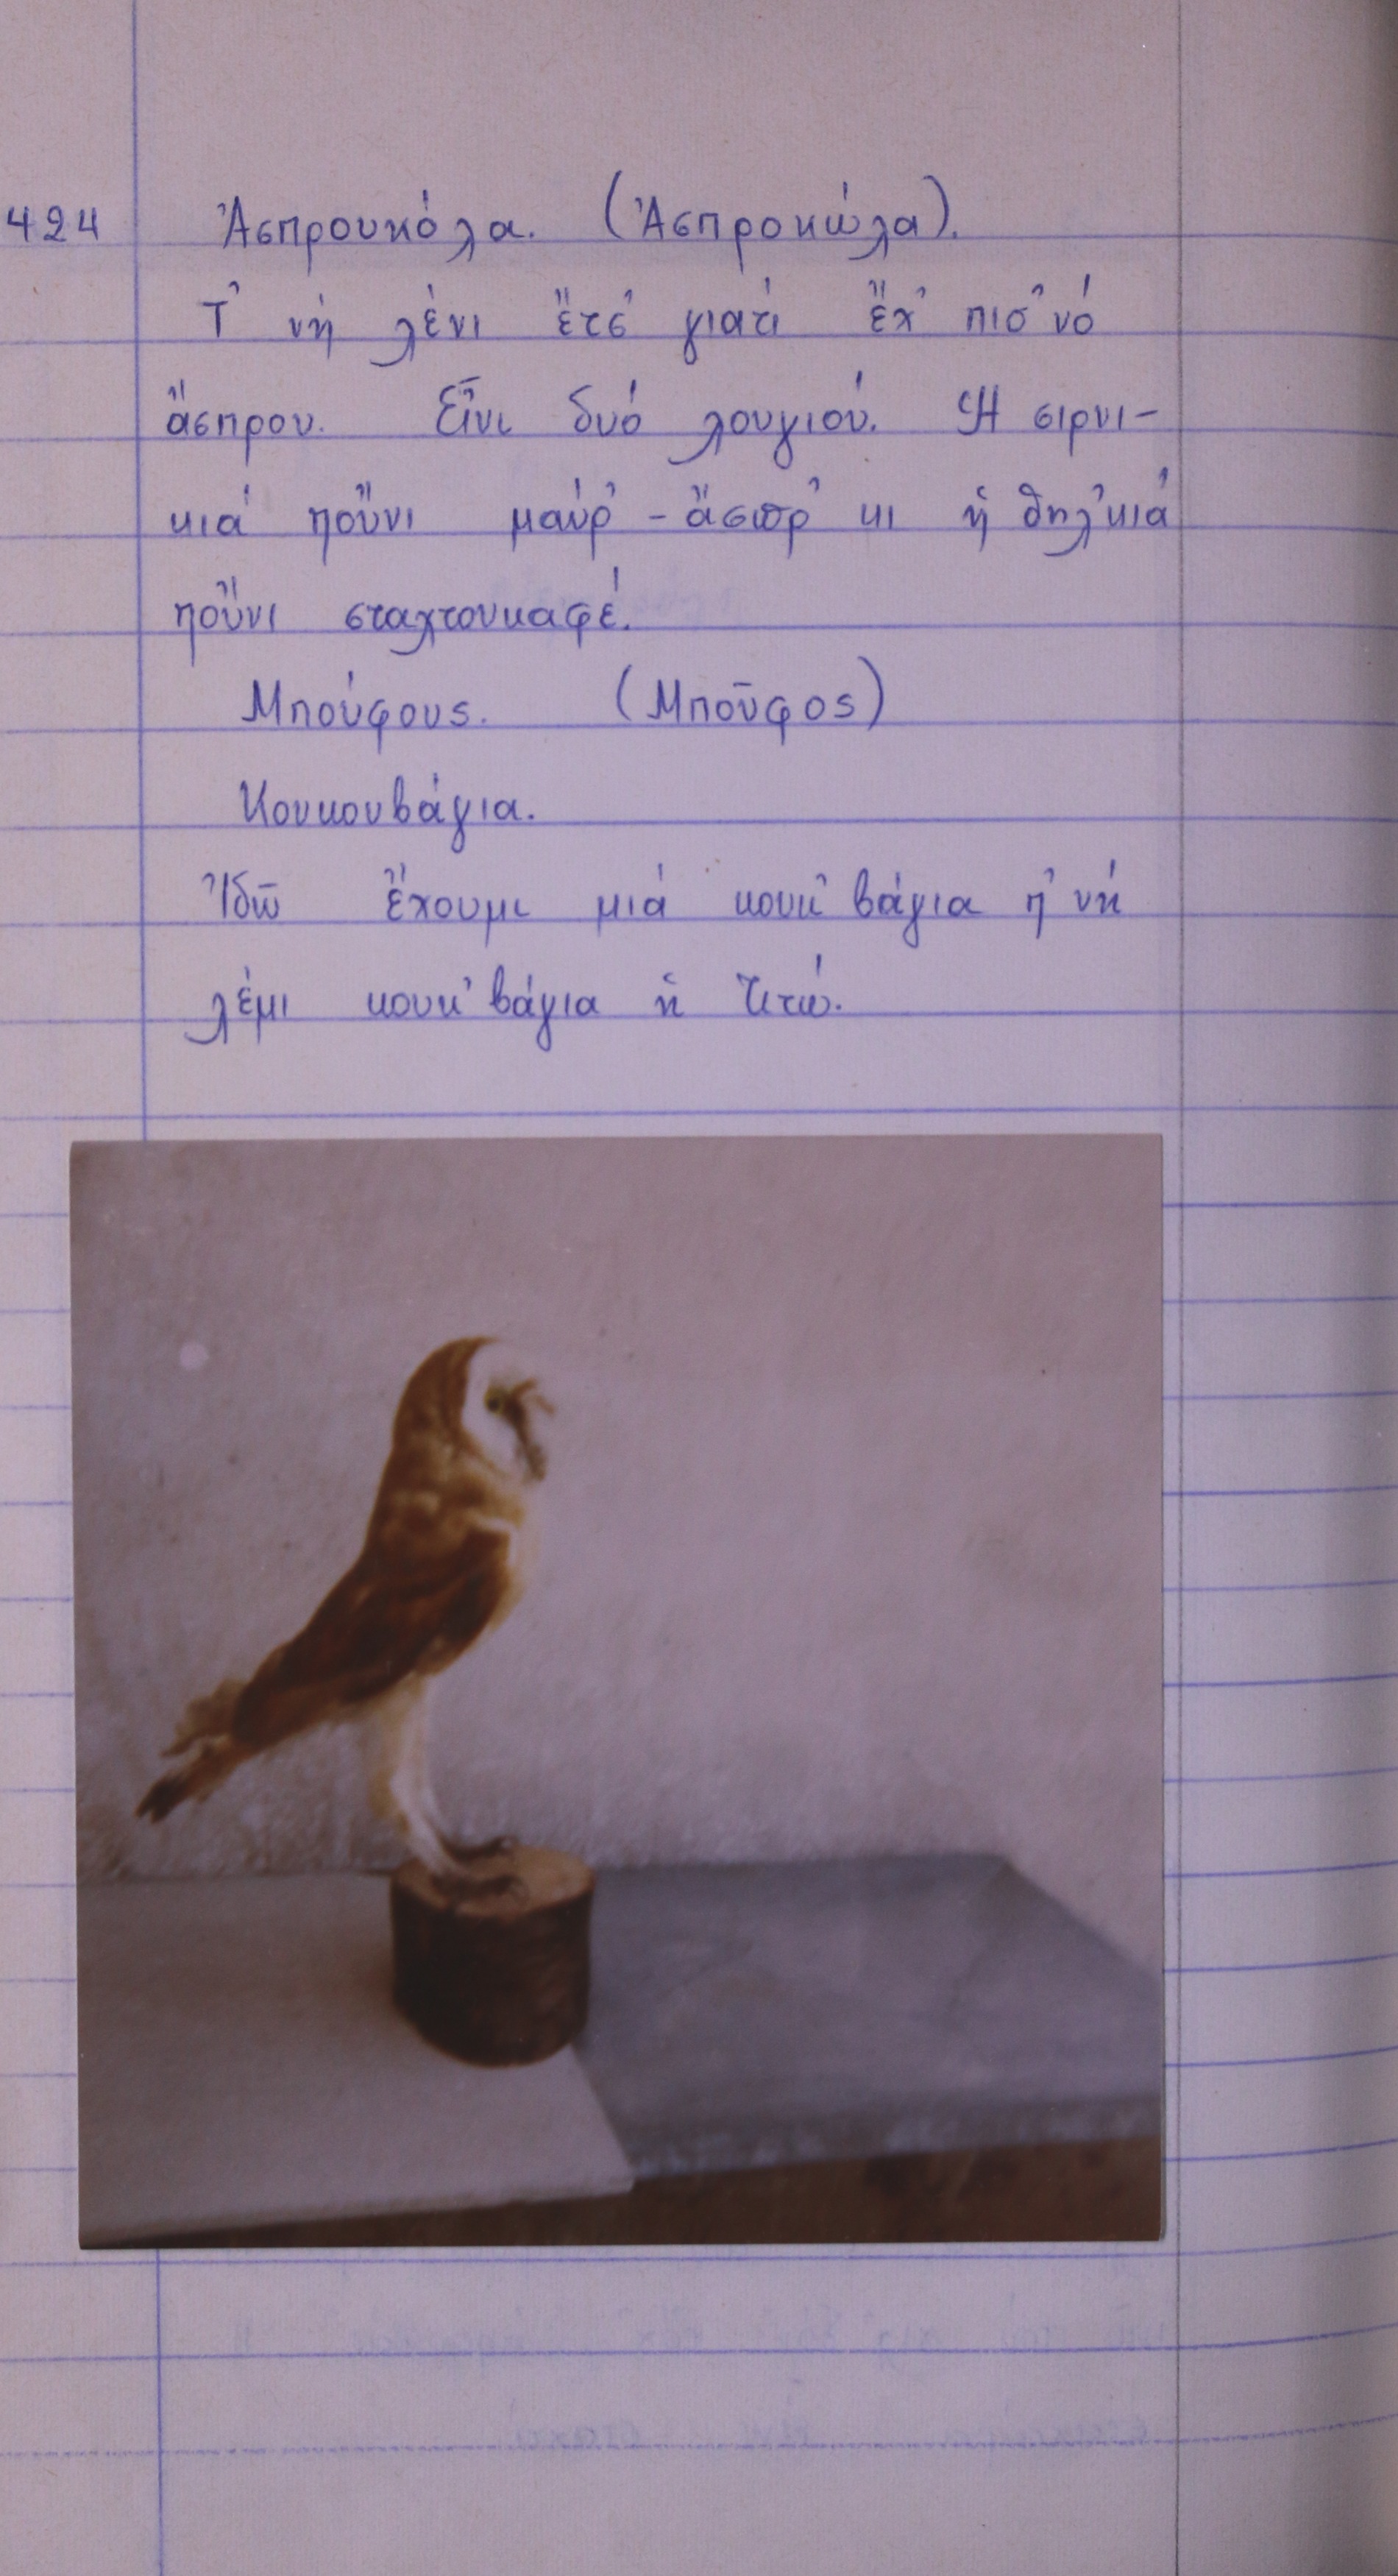 424 Ἀσπρουκόλα. (Ἀσπροκώλα).
Τ' νὴ λένι ἔτσ' γιατὶ ἔχ' πισ' νό
ἄσπρου. Εἶνι δυό λουγιού. Ἡ σιρνι-
κιά ποὔνι μαύρ' - ἄσπρ' κι ἡ θηλ'κιά
ποὔνι σταχτουκαφέ.
Μπούφους. (Μποῦφος)
Κουκουβάγια.
Ἰδῶ ἔχουμι μιά κουκ' βάγια π' νὴ
λέμι κουκ' βάγια ἢ Τιτώ.